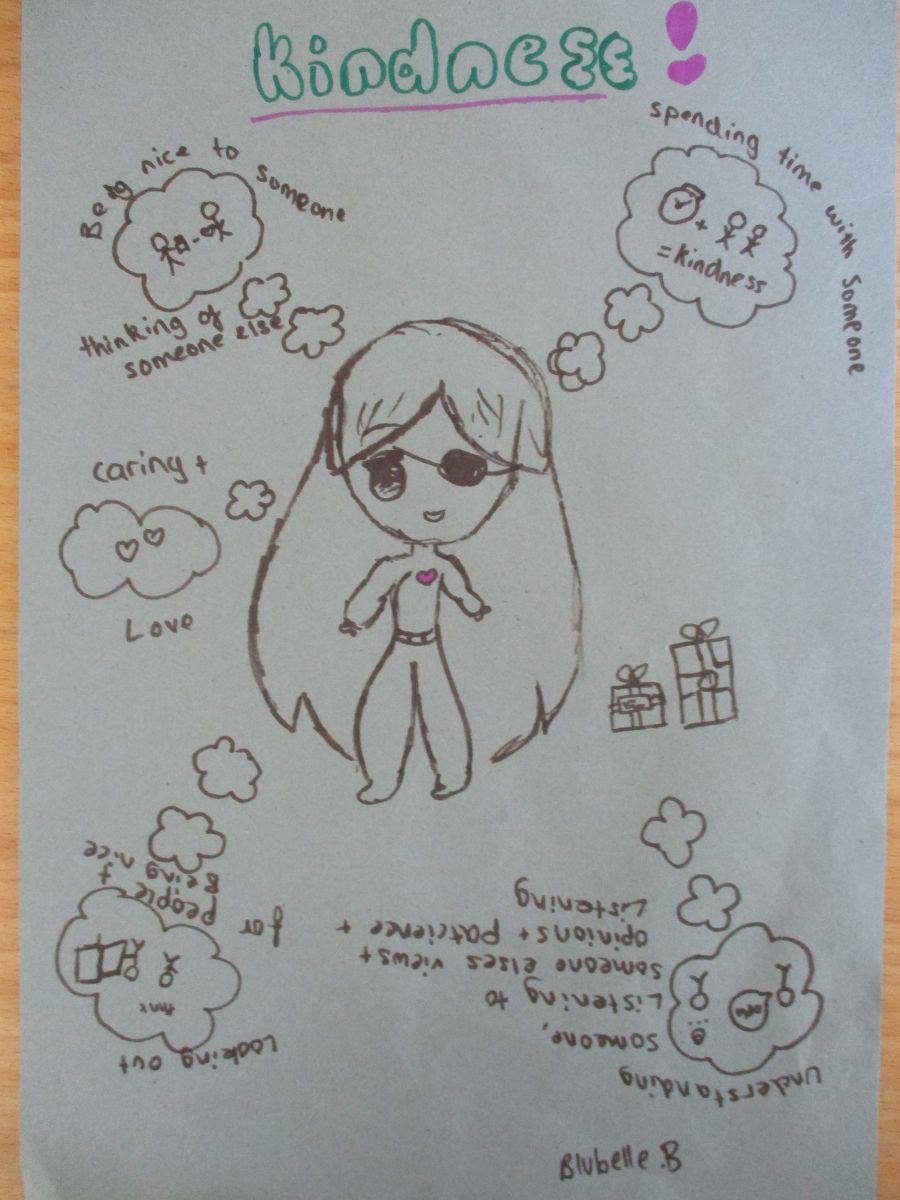 Kindness!
Being nice to someone
thinking of
someone else
spending time with someone
+
=kindness
caring +
Love
Looking out for
people +
Being nice
understanding
someone,
Listening to
someone elses views +
opinions + patcience +
Listening
Blubelle .B